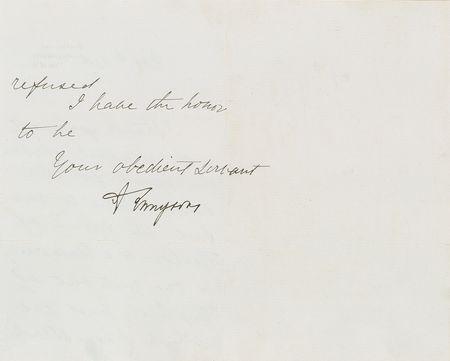 refused
I have the honor
to be
Your obedient Servant
A Tennyson